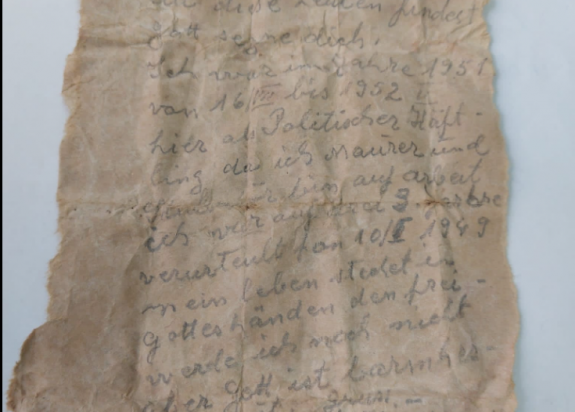 die diese Zeilen findest
Gott segne dich.
Ich war im Jahre 1951
von 16 III bis 1952 II
hier als Politischer Häft-
ling da ich Maurer und
bin auf arbeit
ich war auf 3 Jahre
verurteilt fon 10/II 1949
mein leben stehet in
gotteshänden den frei-
werde ich noch nicht
aber gott ist barmher-